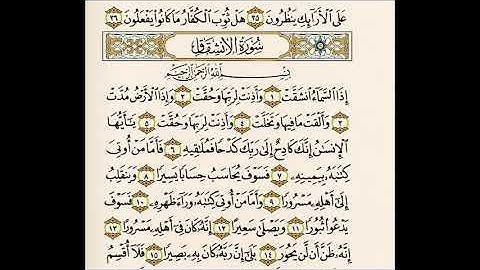 عَلَى ٱلْأَرَآئِكِ يَنظُرُونَ ٣٥ هَلْ ثُوِّبَ ٱلْكُفَّارُ مَا كَانُوا۟ يَفْعَلُونَ ٣٦
سُورَةُ الانشِقَاقِ
بِسْمِ ٱللَّهِ ٱلرَّحْمَٰنِ ٱلرَّحِيمِ
إِذَا ٱلسَّمَآءُ ٱنشَقَّتْ ١ وَأَذِنَتْ لِرَبِّهَا وَحُقَّتْ ٢ وَإِذَا ٱلْأَرْضُ مُدَّتْ
٣ وَأَلْقَتْ مَا فِيهَا وَتَخَلَّتْ ٤ وَأَذِنَتْ لِرَبِّهَا وَحُقَّتْ ٥ يَٰٓأَيُّهَا
ٱلْإِنسَٰنُ إِنَّكَ كَادِحٌ إِلَىٰ رَبِّكَ كَدْحًا فَمُلَٰقِيهِ ٦ فَأَمَّا مَنْ أُوتِىَ
كِتَٰبَهُۥ بِيَمِينِهِۦ ٧ فَسَوْفَ يُحَاسَبُ حِسَابًا يَسِيرًا ٨ وَيَنقَلِبُ
إِلَىٰٓ أَهْلِهِۦ مَسْرُورًا ٩ وَأَمَّا مَنْ أُوتِىَ كِتَٰبَهُۥ وَرَآءَ ظَهْرِهِۦ ١٠ فَسَوْفَ
يَدْعُوا۟ ثُبُورًا ١١ وَيَصْلَىٰ سَعِيرًا ١٢ إِنَّهُۥ كَانَ فِىٓ أَهْلِهِۦ مَسْرُورًا ١٣
إِنَّهُۥ ظَنَّ أَن لَّن يَحُورَ ١٤ بَلَىٰٓ إِنَّ رَبَّهُۥ كَانَ بِهِۦ بَصِيرًا ١٥ فَلَآ أُقْسِمُ